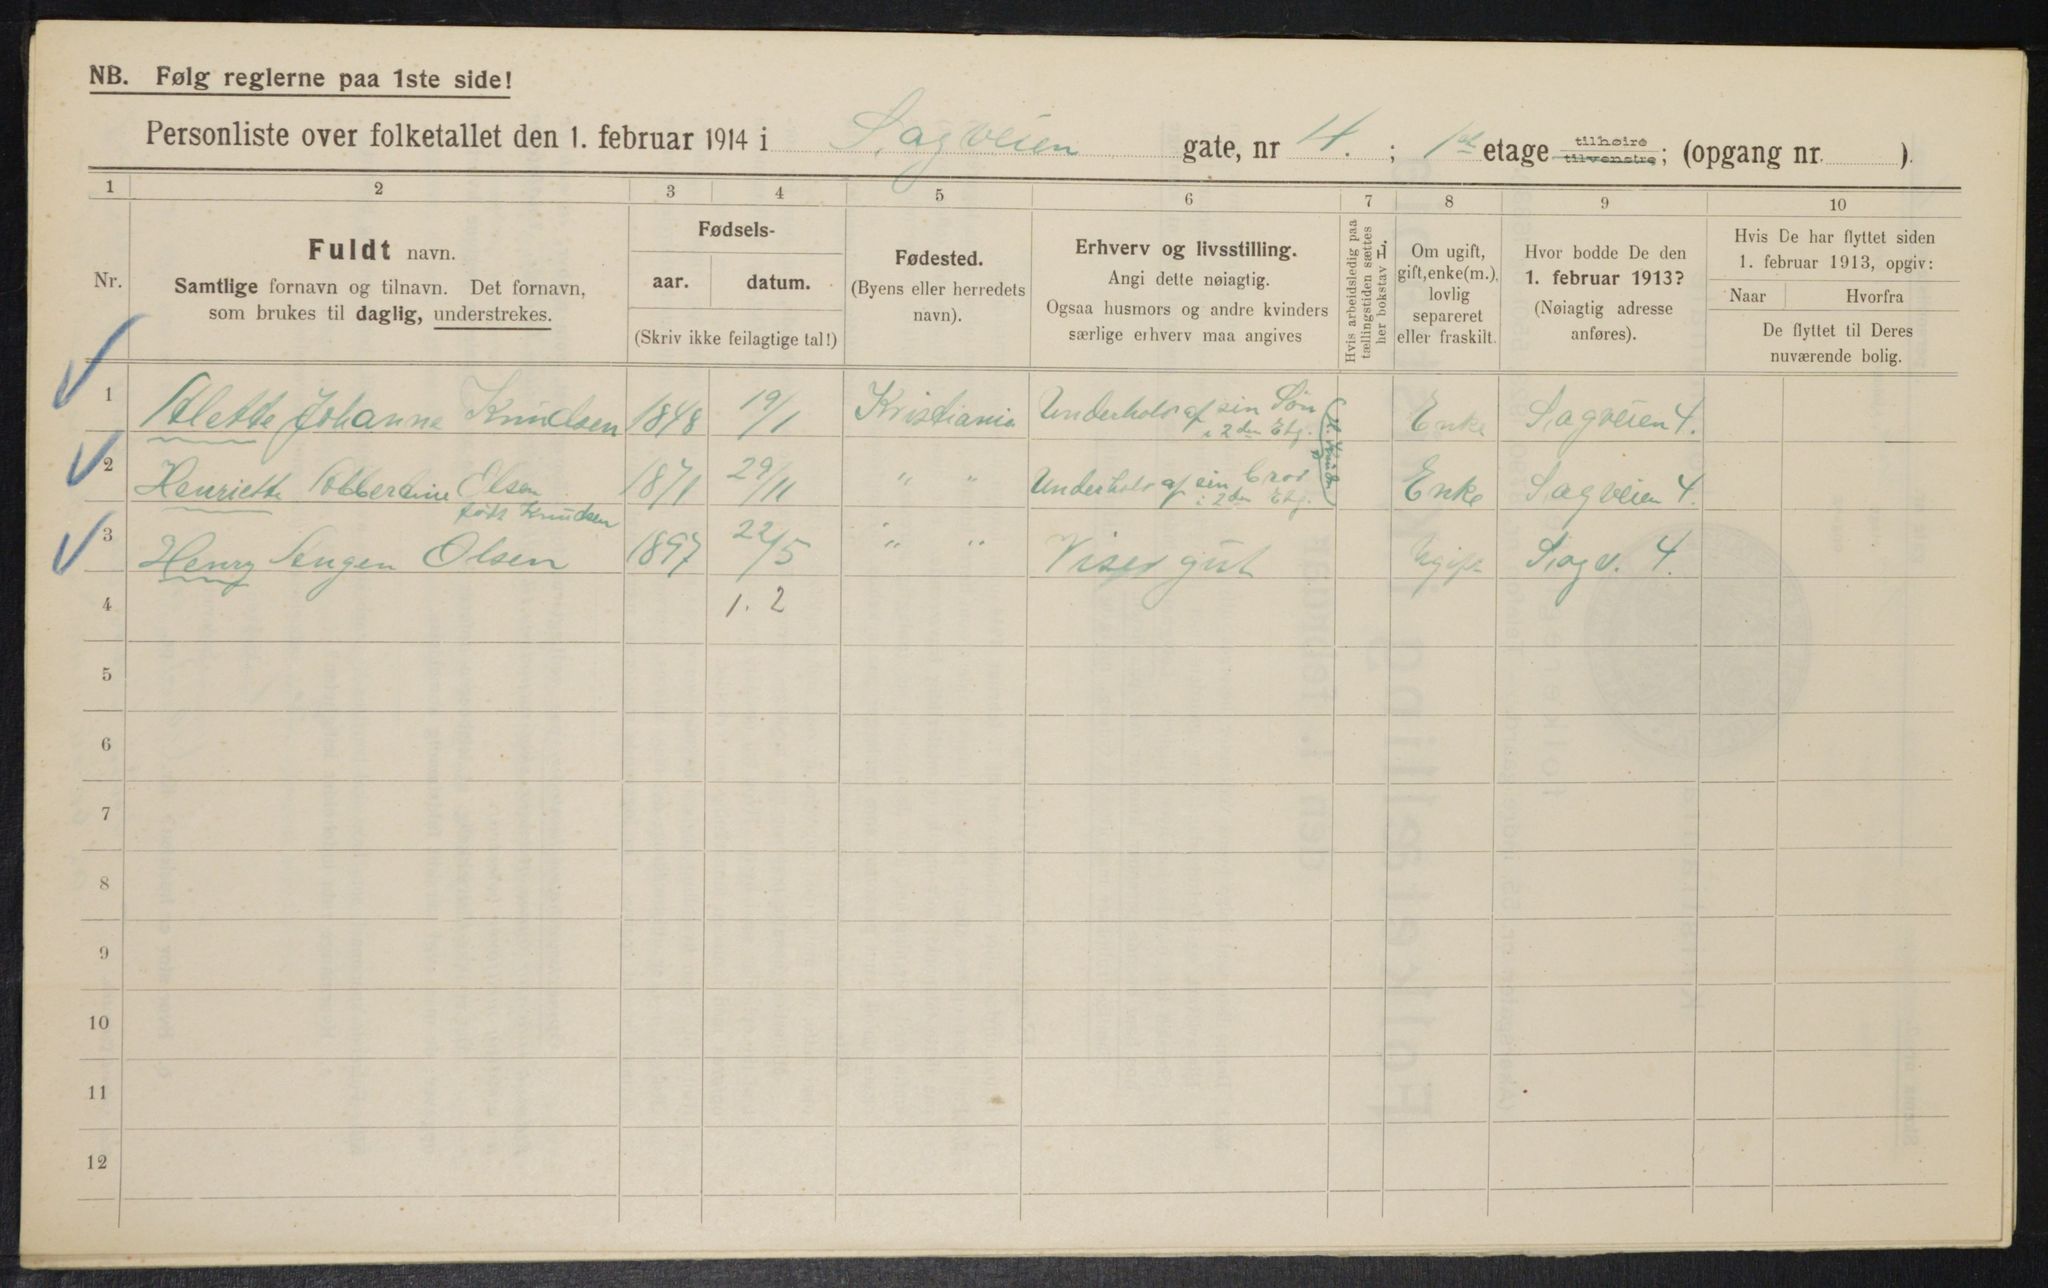 NB. Følg reglerne paa 1ste side!
Personliste over folketallet den 1. februar 1914 i Sagveien gate, nr 4. ; 1ste etage tilhøire tilvenstre; (opgang nr. ).
1 2 3 4 5 6 7 8 9 10
Nr.
Fuldt navn.
Samtlige fornavn og tilnavn. Det fornavn,
som brukes til daglig, understrekes.
Fødsels-
aar. datum.
(Skriv ikke feilagtige tal!)
Fødested.
(Byens eller herredets
navn).
Erhverv og livsstilling.
Angi dette nøiagtig.
Ogsaa husmors og andre kvinders
særlige erhverv maa angives
Hvis arbeidsledig paa
tællingstiden sættes
her bokstav L
Om ugift,
gift, enke(m.),
lovlig
separeret
eller fraskilt.
Hvor bodde De den
1. februar 1913?
(Nøiagtig adresse
anføres).
Hvis De har flyttet siden
1. februar 1913, opgiv:
Naar Hvorfra
De flyttet til Deres
nuværende bolig.
1 Alette Johanne Knudsen 1848 19/1 Kristiania Underhold af sin Søn Enke Sagveien 4.
i 2den Etg.
2 Henriette Olsen 1871 29/11 " " Underhold af sin Bror Enke Sagveien 4.
født Knudsen i 2den Etg.
3 Henry Olsen 1897 22/5 " " Visergut Ugift Sagv. 4.
4 1. 2
5
6
7
8
9
10
11
12